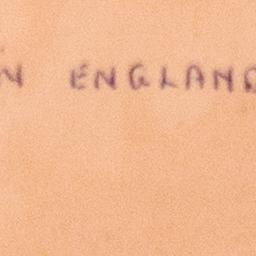 N ENGLAND